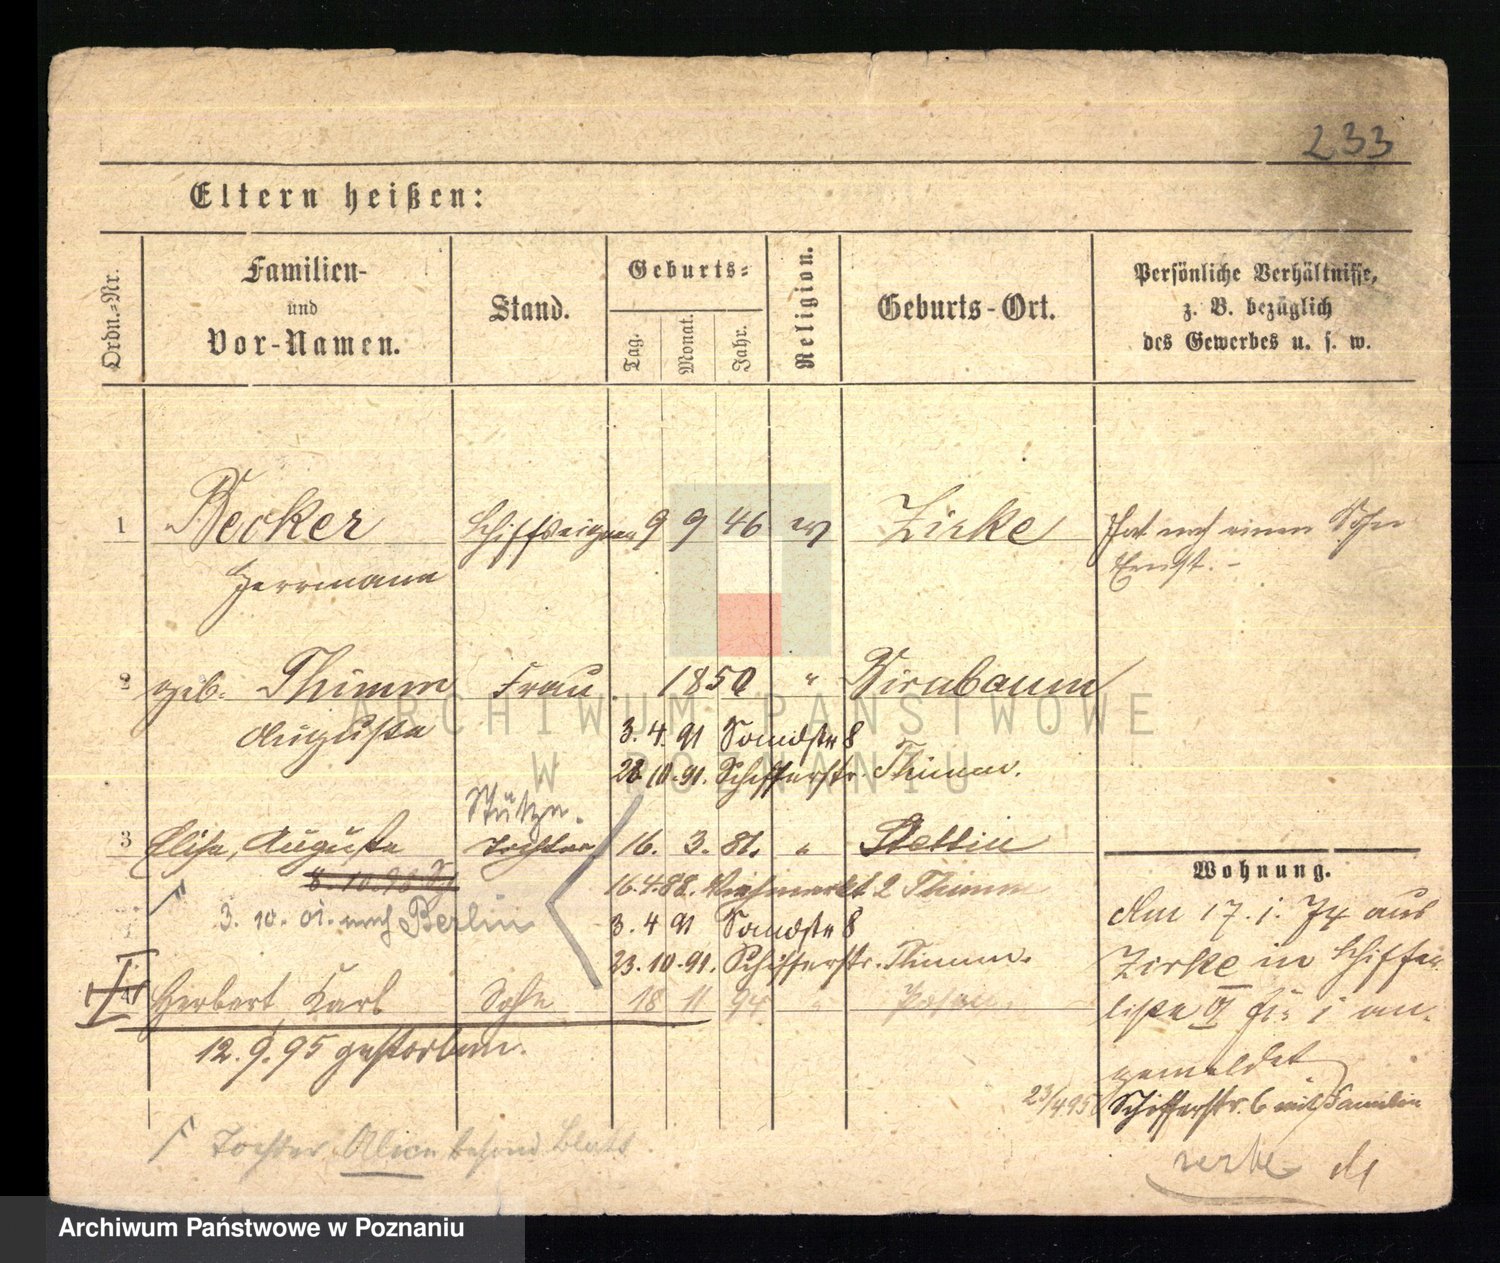 233
Eltern heißen:
Ordn.-Nr.
Familien-
und
Vor-Namen.
Stand.
Geburts-
Tag.
Monat.
Jahr.
Religion.
Geburts-Ort.
Persönliche Verhältnisse,
z. B. bezüglich
des Gewerbes u. s. w.
1 Becker Schiffseigner 9 9 46 ev Zirke Hat noch einen Sohn
Herrmann Ernst. -
2 geb. Thimm Frau. 1850 " Birnbaum
Auguste 3. 4. 91 Sandstr 8
23.10.91. Schifferstr. Thimm.
Stütze.
3 Elise, Auguste Tochter 16. 3. 81. " Stettin
8.10.98 16.4.88. Viehmarkt 2 Thimm
3. 10. 01. nach Berlin 3. 4 91 Sandstr 8
23.10.91. Schifferstr. Thimm.
4 Herbert Karl Sohn 18 11 94 " Posen
12. 9. 95 gestorben.
Wohnung.
Am 17. 1. 74 aus
Zirke in Schiffer
liste II an-
gemeldet
23/4 95 Schifferstr. 6 mit Familie
Tochter Alice besond Blatt
ARCHIWUM PAŃSTWOWE
W POZNANIU
Archiwum Państwowe w Poznaniu